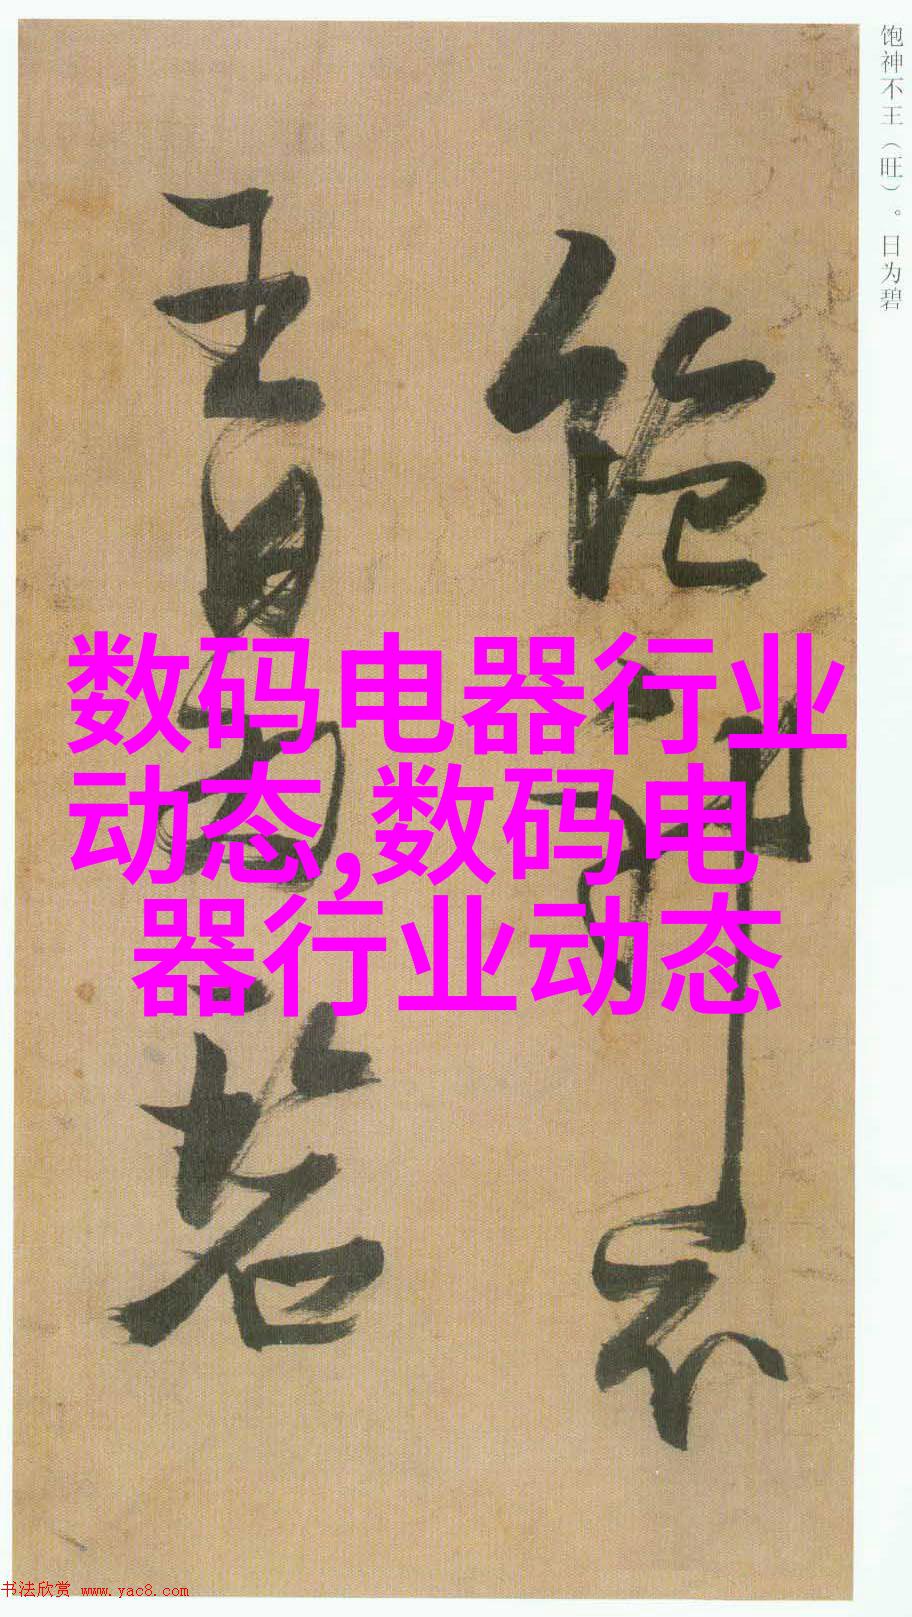 饱神不王（旺）。日为碧
饱神不
王日为若
数码电器行业
动态,数码电
器行业动态
书法欣赏 www.yac8.com